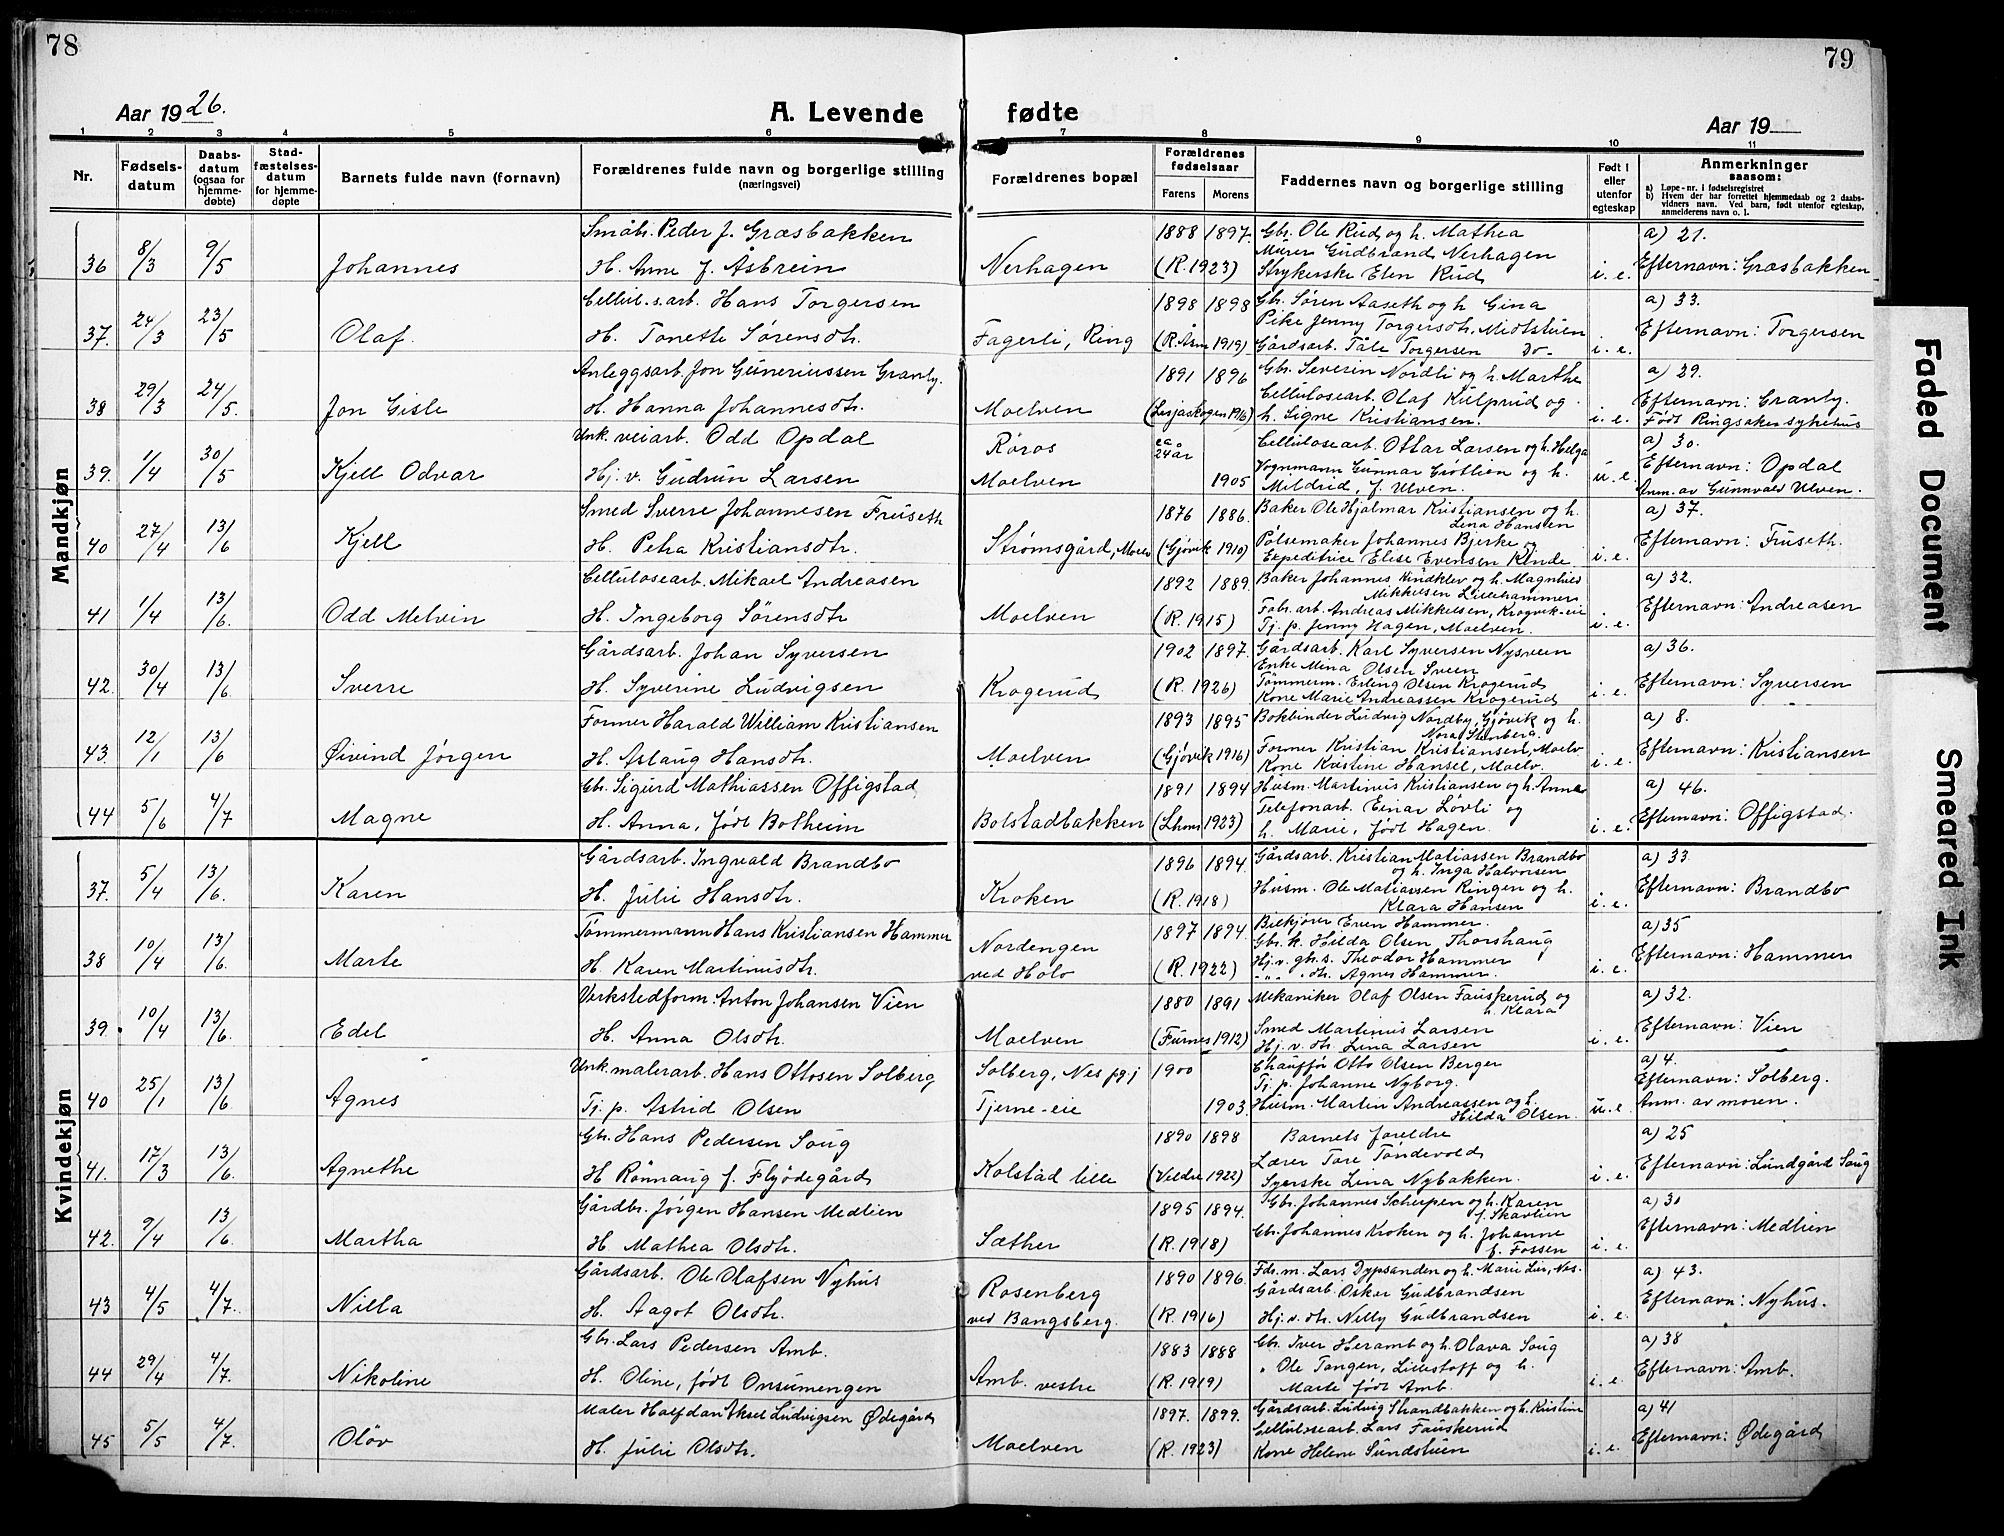 78
79
Aar 1926.
A. Levende fødte
Aar 19
1 2 3 4 5 6 7 8 9 10 11
Nr.
Fødsels-datum
Daabs-datum (ogsaa for hjemme-døbte)
Stad-fæstelses-datum for hjemme-døpte
Barnets fulde navn (fornavn)
Forældrenes fulde navn og borgerlige stilling (næringsvei)
Forældrenes bopæl
Forældrenes fødselsaar
Farens Morens
Faddernes navn og borgerlige stilling
Født i eller utenfor egteskap
Anmerkninger saasom:
a) Løpe-nr. i fødselsregistret
b) Hvem der har forrettet hjemmedaab og 2 daabsvidners navn. Ved barn, født utenfor egteskap, anmelderens navn o. l.
Mandkjøn
Småbr. Peder J. Græsbakken 1888 1897. Gbr. Ole Rud og h. Mathea a) 21.
36 8/3 9/5 Johannes H. Anne f. Åsbrein Nerhagen (R. 1923) Murer Gudbrand Nerhagen
Strykerske Elen Rud i. e. Efternavn: Græsbakken
Cellul.s.arb. Hans Torgersen 1898 1898 Gbr. Søren Aaseth og h Gina a) 33.
37. 24/3 23/5 Olaf. H. Tonette Sørensdtr. Fagerli, Ring (R. Åsm 1919) Pike Jenny Torgersdtr. Midtstuen
Gårdsarb. Tåle Torgersen Do- i. e. Efternavn: Torgersen
Anleggsarb. Jon Gunerussen Granly. 1891 1896 Gbr. Severin Nordli og h. Marthe a) 29.
38 29/3 24/5. Jon Gisle H. Hanna Johannesdtr. Moelven (Lesjaskogen 1916) Cellulosearb. Olaf Kulprud og
h. Signe Kristiansen. i. e. Efternavn: Granly.
Født Ringsaker sykehus
Unk. veiarb. Odd Opdal Røros ca. 24 år Cellulosearb. Ottar Larsen og h. Helga a) 30.
39. 1/4 30/5 Kjell Odvar Hj. v. Gudrun Larsen Moelven 1905 Vognmann Gunnar Grøtlien og h.
Mildrid, f. Ulven. u. e. Efternavn: Opdal
Anm. av Gunnvald Ulven.
Smed Sverre Johannesen Fruseth 1876 1886. Baker Ole Hjalmar Kristiansen og h. Lina Hansen a) 37.
40 27/4 13/6 Kjell H. Petra Kristiansdtr. Strømsgård, Moelv (Gjøvik 1910) Pølsemaker Johannes Bjerke og
Expeditrice Elise Evensen Kinde i. e. Efternavn: Fruseth.
Cellulosearb. Mikael Andreasen 1892 1889. Baker Johannes Kindklev og h. Magnhild
Mikkelsen Lillehammer a) 32.
41 1/4 13/6. Odd Melvin H. Ingeborg Sørensdtr Moelven (R. 1915) Fabr.arb. Andreas Mikkelsen, Krogvik-eie
Tj. p. Jenny Hagen, Moelven. i. e. Efternavn: Andreasen
Gårdsarb. Johan Syversen 1902 1897. Gårdsarb. Karl Syversen Nysveen a) 36.
42. 30/4 13/6. Sverre H. Syverine Ludvigsen Krogerud (R. 1926) Enke Mina Olsen Sveen
Tømmerm. Erling Olsen Krogerud
Kone Marie Andreassen Krogerud i. e. Efternavn: Syversen
Former Harald William Kristiansen 1893 1895 Bokbinder Ludvig Nordby, Gjøvik og h.
Nora Stenberg. a) 8.
43. 12/1 13/6 Øivind Jørgen H. Aslaug Hansdtr. Moelven (Gjøvik 1916) Former Kristian Kristiansen, Moelv
Kone Kristine Hansel, Moelv. i. e. Efternavn: Kristiansen
Gbr. Sigurd Mathiassen Offigstad 1891 1894 Husm. Martinus Kristiansen og h. Anna a) 46.
44 5/6 4/7 Magne H. Anna, født Botheim Bolstadbakken (Lhmr 1923) Telefonarb. Einar Løvli og
h. Marie, født Hagen. i. e. Efternavn: Offigstad.
Kvindekjøn
Gårdsarb. Ingvald Brandbo 1896 1894. Gårdsarb. Kristian Matiassen Brandbo
og h. Inga Halvorsen a) 33.
37. 5/4 13/6. Karen H. Julie Hansdtr. Kroken (R. 1918) Husm. Ole Matiassen Ringen og h.
Klara Hansen i. e. Efternavn: Brandbo
Tømmermann Hans Kristiansen Hammer 1897 1894. Bilkjører Even Hammer. a) 35
38 10/4 13/6. Marte H. Karen Martinusdtr. Nordengen ved Holo (R. 1922) Gbr. k. Hilda Olsen Thorshaug
Hj. v. gbr. s. Theodor Hammer
" " " dtr. Agnes Hammer. i. e. Efternavn: Hammer
Verkstedform. Anton Johansen Vien 1880 1891 Mekaniker Olaf Olsen Fauskerud og h. Klara a) 32.
39. 10/4 13/6. Edel H. Anna Olsdtr. Moelven (Furnes 1912) Smed Martinus Larsen
Hj. v. dtr. Lina Larsen i. e. Efternavn: Vien
Unk. malerarb. Hans Ottosen Solberg Solberg, Nes pgj 1900 Chauffør Otto Olsen Berger a) 4.
40 25/1 13/6 Agnes Tj. p. Astrid Olsen Tjerne-eie 1903. Tj. p. Johanne Nyborg.
Husm. Martin Andreassen og h.
Hilda Olsen. u. e Efternavn: Solberg.
Anm. av moren.
Gbr. Hans Pedersen Saug 1890 1898 Barnets foreldre a) 25
41. 17/3 13/6. Agnethe H Rønnaug f. Fløjdegård Kolstad lille (Veldre 1922) Lærer Tore Tøndevold
Syerske Lina Nybakken. i. e. Efternavn: Lundgård Saug
Gårdbr. Jørgen Hansen Medlien 1895 1894. Gbr. Johannes Scherpen og h. Karen
f. Skavlien a) 30
42. 9/4 13/6. Martha H Mathea Olsdtr. Sæther (R. 1918) Gbr. Johannes Kroken og h. Johanne
f. Fossen i. e. Efternavn: Medlien
Gårdsarb. Ole Olafsen Nyhus 1890 1896. Fds.m. Lars Dypsanden og h. Marie Lier, Nes. a) 43.
43 4/5 4/7. Nilla H. Aagot Olsdtr. Rosenberg ved Bangsberg. (R. 1916) Gårdsarb. Oskar Gudbrandsen
Hj. v. dtr. Nelly Gudbrandsen i. e. Efternavn: Nyhus.
Gbr. Lars Pedersen Amb. 1883 1888 Gbr. Iver Heramb og h. Olava Saug a) 38
44 29/4 4/7. Nikoline H. Oline, født Onsumengen Amb. vestre (R. 1919) " Ole Tangen, Lillestoff og h.
Marte født Amb. i. e. Efternavn: Amb.
Maler Halfdan Aksel Ludvigsen Ødegård 1897. 1899. Gårdsarb. Ludvig Strandbakken og h. Kristine a) 41
45 5/5 4/7. Oløv H. Julie Olsdtr. Moelven (R. 1923) Cellulosearb. Lars Fauskerud
Kone Helene Sundstuen i. e. Efternavn: Ødegård
Faded Document
Smeared Ink